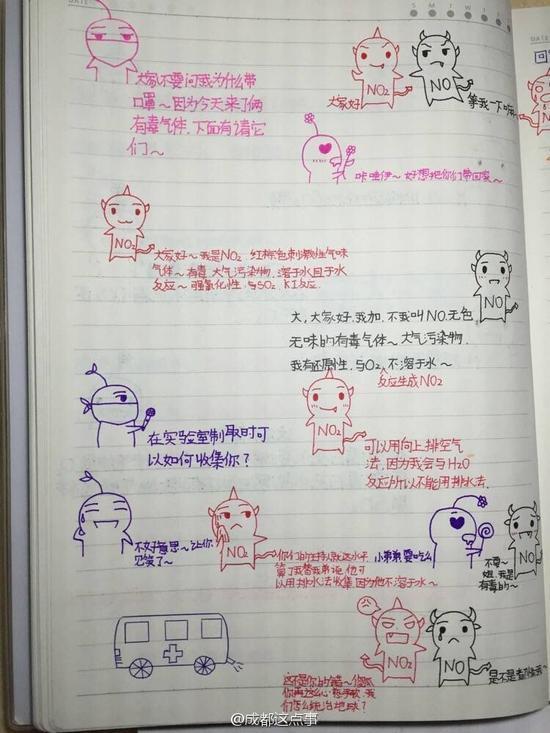 DATE
S M T W T F S
DATE
大家不要问我为什么带
口罩～因为今天来了俩
有毒气体,下面有请它
们～
NO₂
NO
大家好
等我一下嘛
NO
咔哇伊～好想把你们带回家～
NO₂
大家好～我是NO₂ 红棕色刺激性气味
气体～有毒 大气污染物.溶于水且于水
反应～强氧化性.与SO₂、KI反应.
NO
大,大家好.我加.不我叫NO.无色
无味的有毒气体～大气污染物.
我有还原性.与O₂反应生成NO₂.不溶于水～
在实验室制取时可
以如何收集你?
NO₂
可以用向上排空气
法,因为我会与H₂O
反应所以不能用排水法.
不好意思～让你
见笑了～
NO₂
你们的主持人就这水平
算了我替我弟说.他可
以用排水法收集.因为他不溶于水～
小弟弟要吃么
NO
不要～
姐.我是
有毒的～
NO₂
NO
这不是你的错～
你再这么
们怎么统治地球?
是不是
@成都这点事